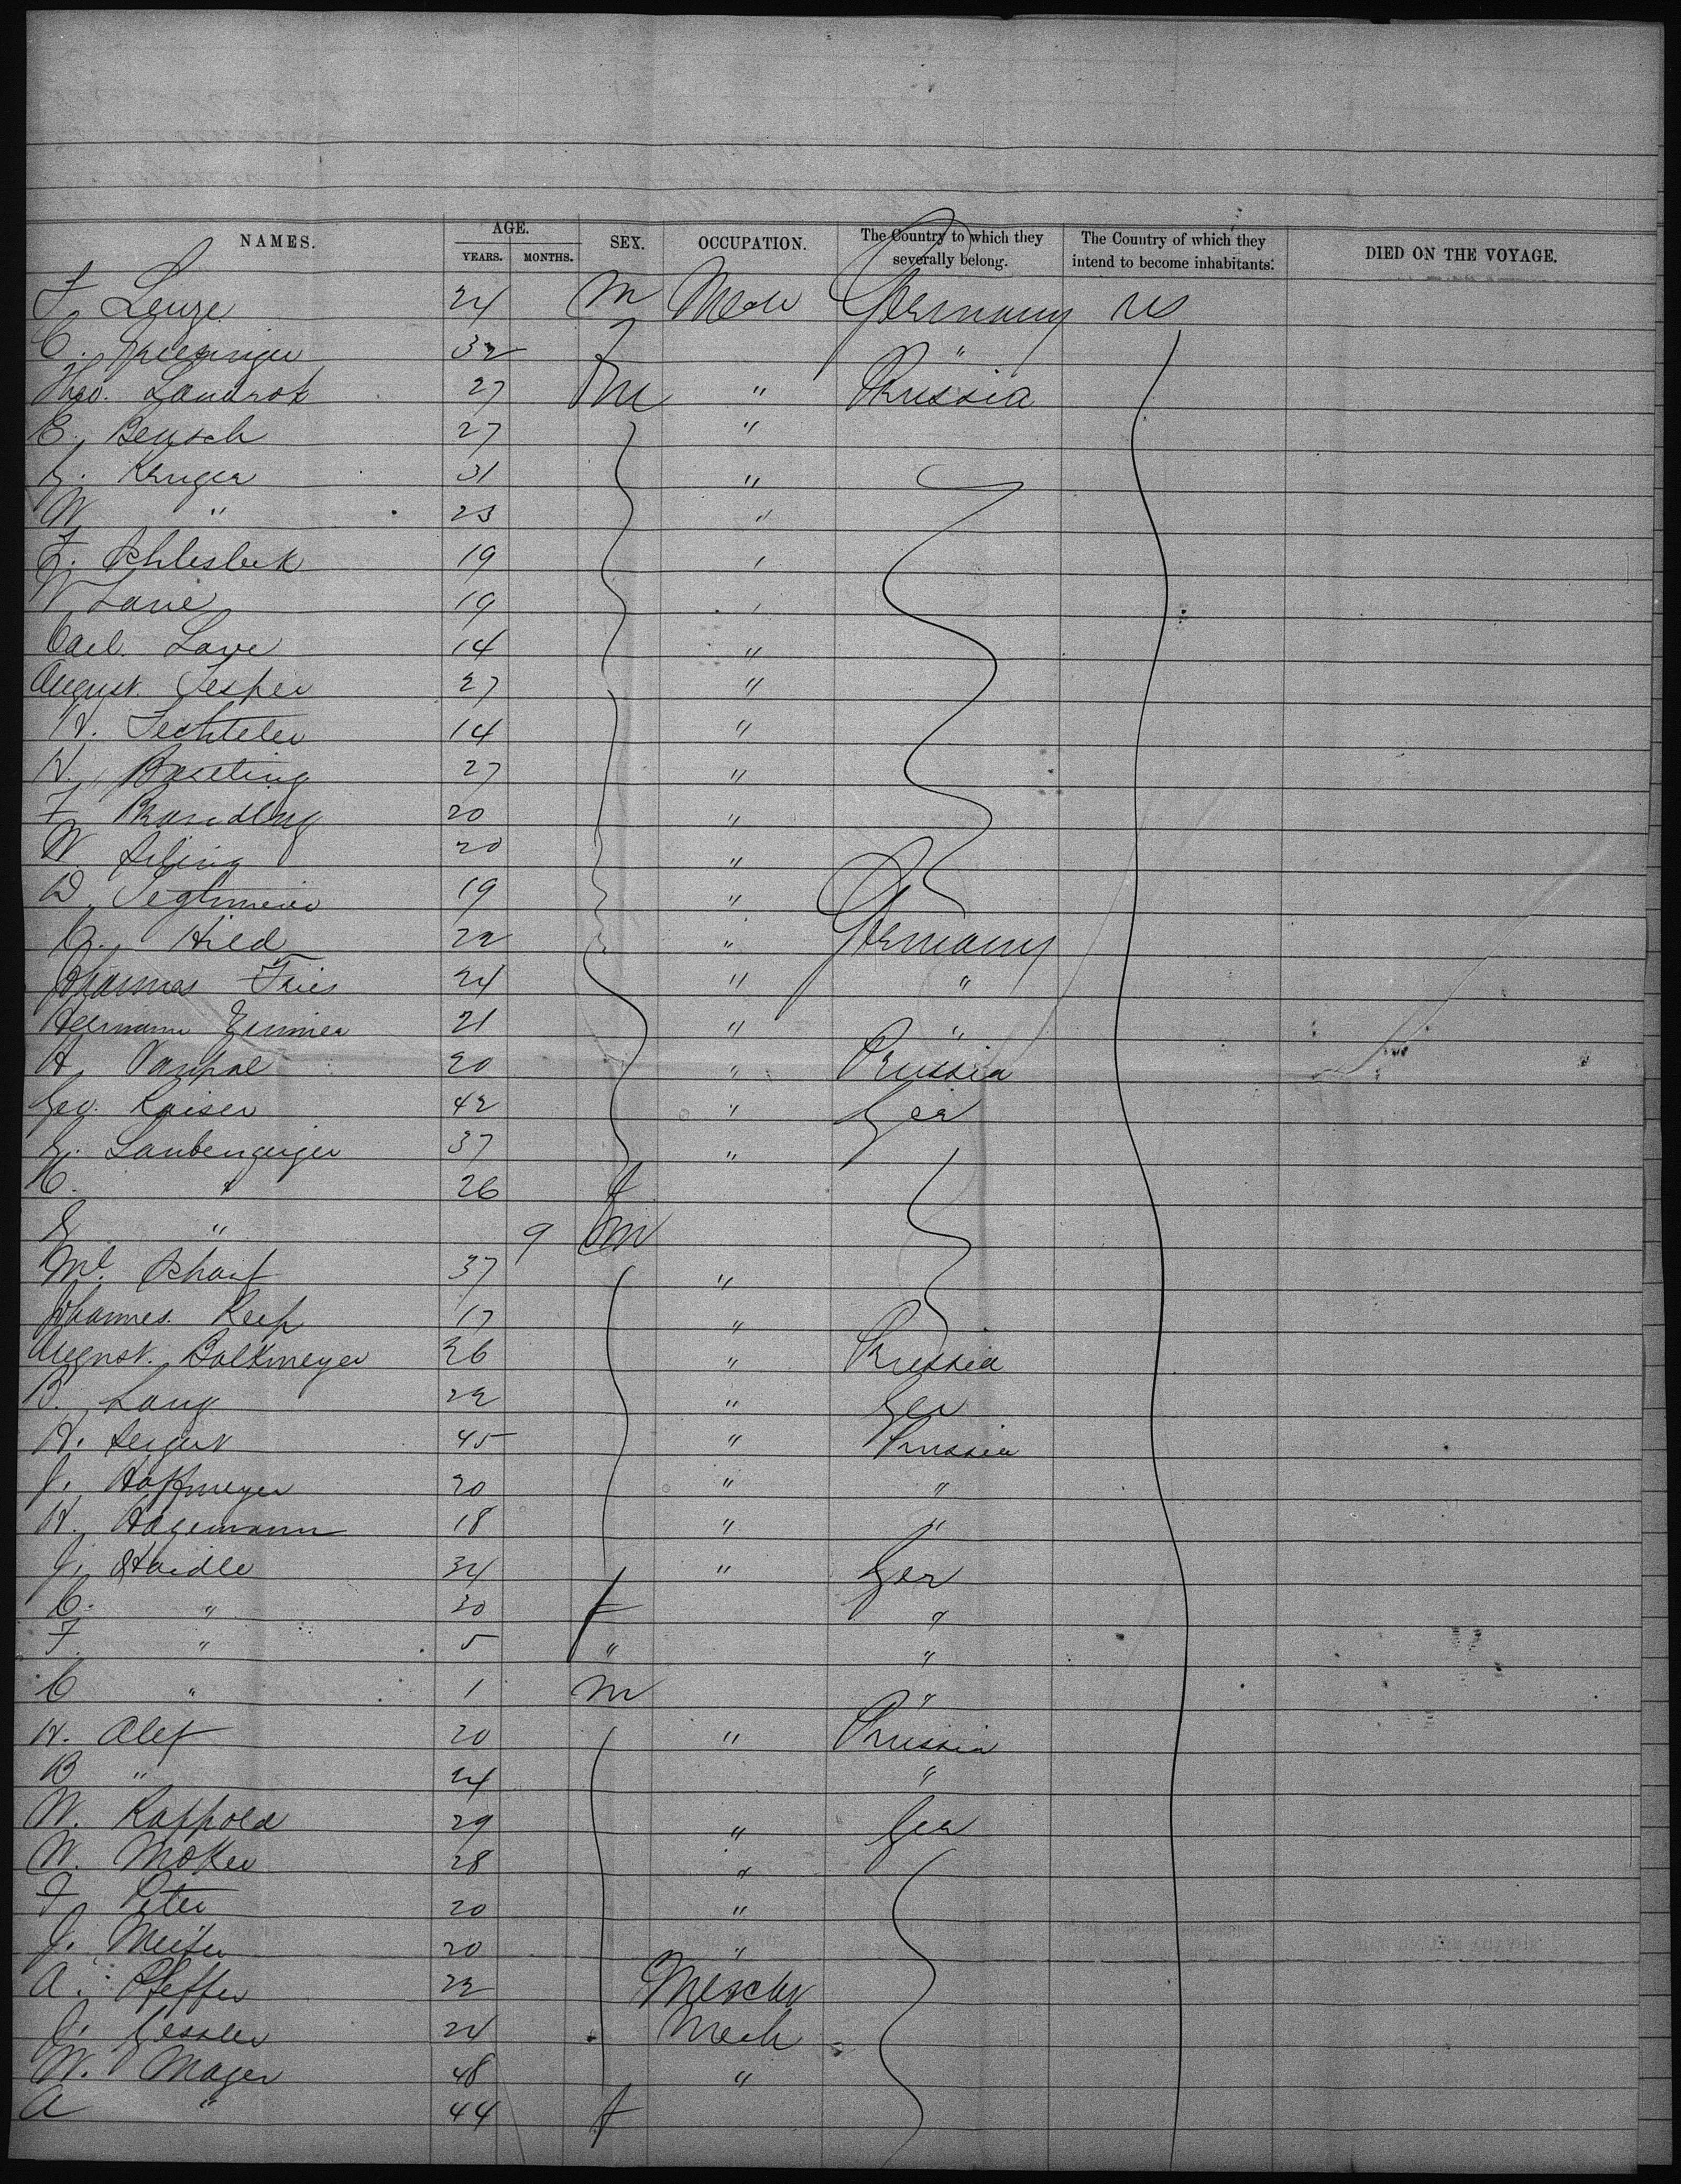 NAMES. AGE. YEARS. MONTHS. SEX. OCCUPATION. The Country to which they severally belong. The Country of which they intend to become inhabitants. DIED ON THE VOYAGE.
F Lenze 24 m Mech Germany US
C. 32 "
Theo. Landrok 27 m " Prussia
E. Bensch 27 "
G. Kruger 31 "
W. " 23 "
F. 19 "
W. 19 "
Carl. 14 "
August. Tesper 27 "
H. Techteler 14 "
H. 27 "
F. Brandling 20 "
W. 20 "
D. 19 "
C. Hild 22 " Germany
Johannes Fries 24 " "
Hermann 21 " "
H. 20 " Prussia
Geo. Kaiser 42 " Ger
G. Laubengeiger 37 "
C. " 26 f
G " 9 m
Ml. Schaaf 37 "
Johannes. Reep 17 "
August. Bolkmeyer 26 " Prussia
B. Lang 22 " Ger
H. 45 " Prussia
J. Hoffmeyer 20 " "
H. Hagemann 18 " "
J. Haidle 34 " Ger
C. " 30 f "
F. " 5 " "
C " 1 m "
H. Alef 20 " Prussia
B " 24 "
W. Rappold 29 " Ger
W. Moker 28 "
F Peter 20 "
J. 20 "
A. Pfeffer 22
J. Gessler 24 Mech
W. Mager 48 "
A " 44 f